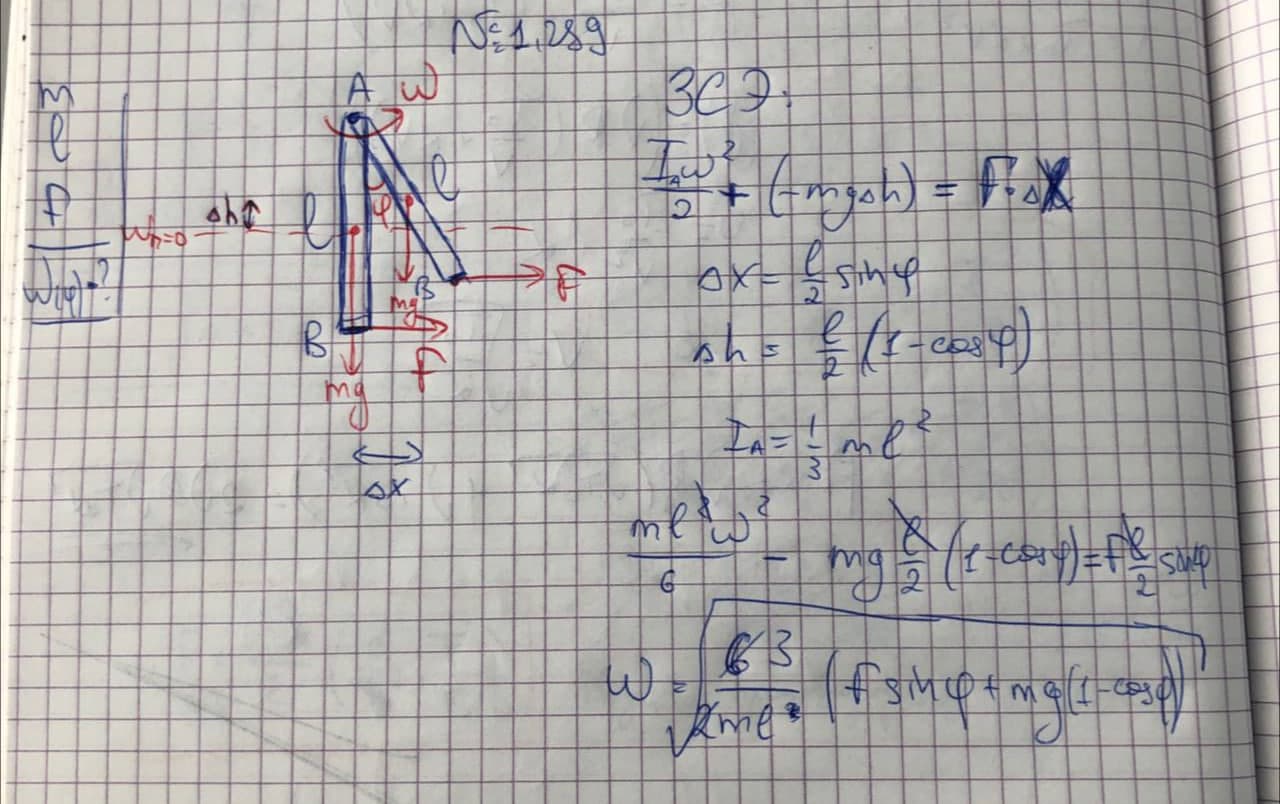 №1.289
m
l
F
W(φ)-?
Wп=0
Δh
A
ω
l
l
φ
B
mg
F
B
mg
F
Δx
ЗСЭ:
I_Aω²/2 + (-mgΔh) = F·ΔX
Δx = l/2 sinφ
Δh = l/2 (1-cosφ)
I_A = 1/3 ml²
ml²ω²/6 - mg l/2 (1-cosφ) = F l/2 sinφ
ω = √(3/ml (F sinφ + mg(1-cosφ)))